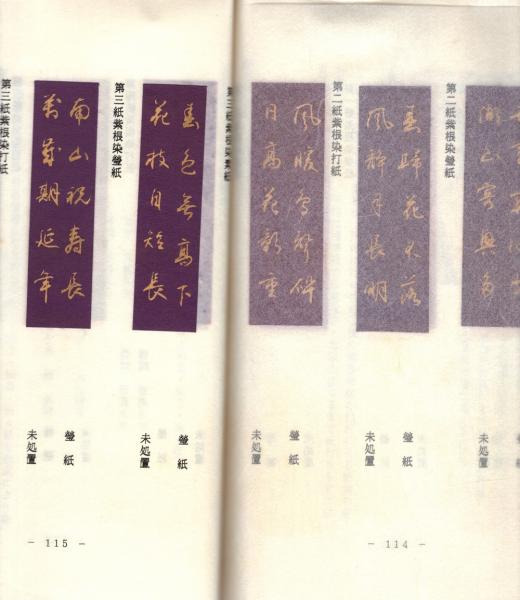 未処置
第二紙紫根染瑩紙
春歸花不落
風静月長明
瑩 紙
未処置
第二紙紫根染打紙
風暖鳥聲碎
日高花影重
瑩 紙
未処置
- 114 -
第三紙紫根染素紙
春色無高下
花枝自短長
瑩 紙
未処置
第三紙紫根染瑩紙
南山祝寿長
萬歳期延年
瑩 紙
未処置
第三紙紫根染打紙
- 115 -